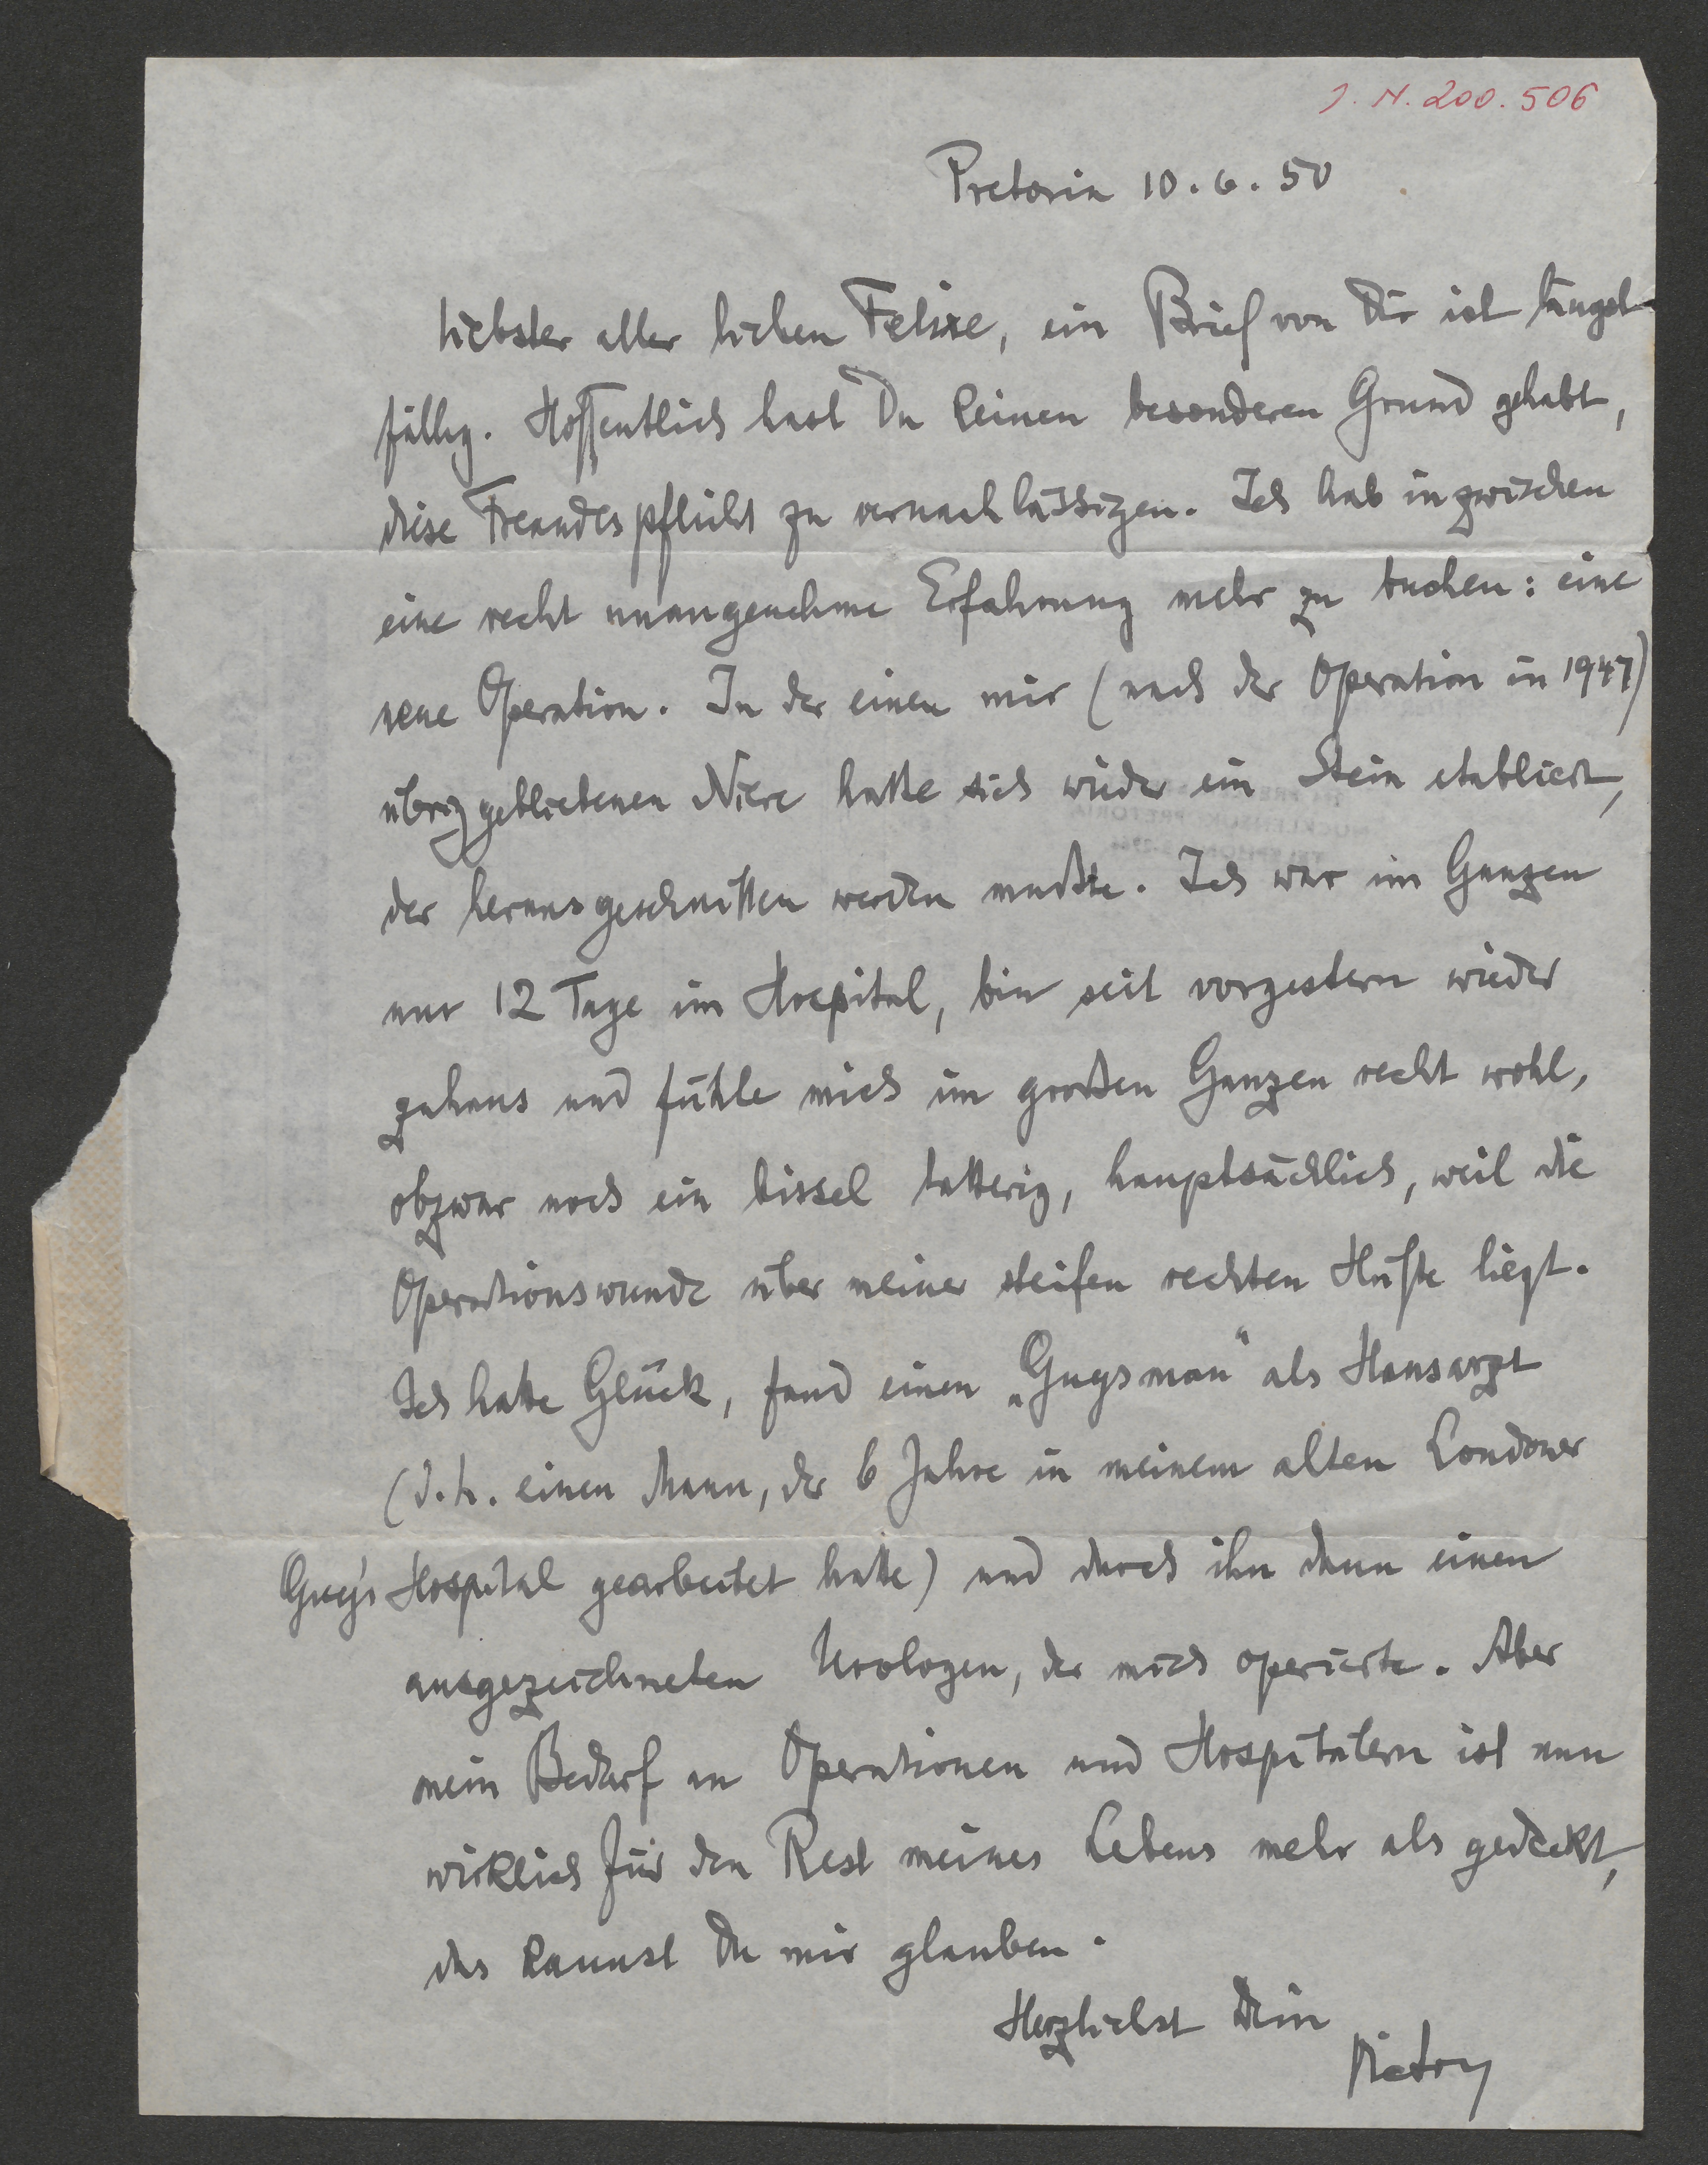 J. N. 200.506
Pretoria 10.6.50
Liebster aller lieben Felixe, ein Brief von Dir ist längst
fällig. Hoffentlich hast Du keinen besonderen Grund gehabt,
diese Freundespflicht zu vernachlässigen. Ich hab inzwischen
eine recht unangenehme Erfahrung mehr zu buchen: eine
neue Operation. In der einen mir (nach der Operation in 1947)
übriggebliebenen Niere hatte sich wieder ein Stein etabliert,
der herausgeschnitten werden mußte. Ich war im Ganzen
nur 12 Tage im Hospital, bin seit vorgestern wieder
zuhaus und fühle mich im großen Ganzen recht wohl,
obzwar noch ein bissel tatterig, hauptsächlich, weil die
Operationswunde über meiner steifen rechten Hüfte liegt.
Ich hatte Glück, fand einen „Guysman“ als Hausarzt
(d.h. einen Mann, der 6 Jahre in meinem alten Londoner
Guy's Hospital gearbeitet hatte) und durch ihn dann einen
ausgezeichneten Urologen, der mich operierte. Aber
mein Bedarf an Operationen und Hospitälern ist nun
wirklich für den Rest meines Lebens mehr als gedeckt,
das kannst Du mir glauben.
Herzlichst Dein